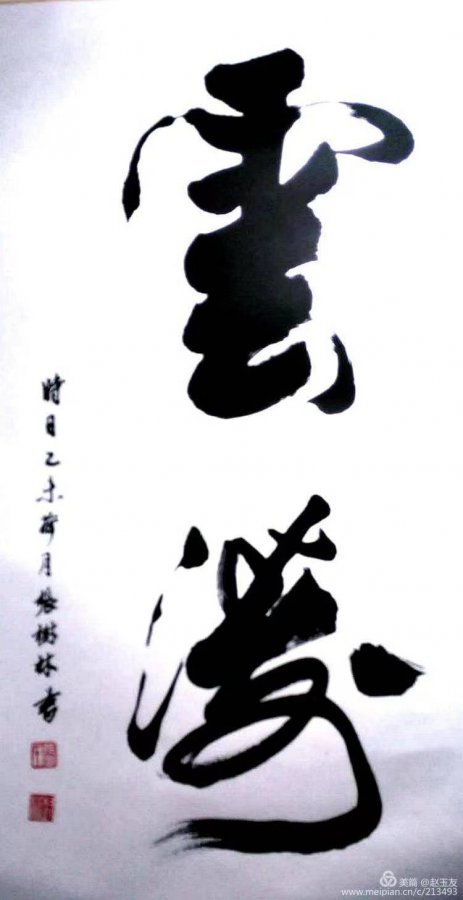 雲濤
時日乙未荷月張樹林書
美篇 @赵玉友
www.meipian.cn/c/213493